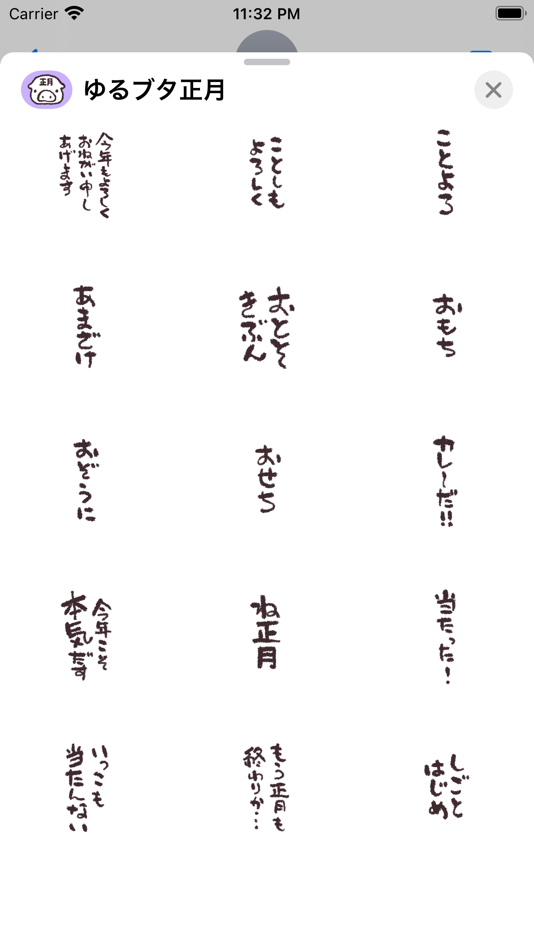 Carrier
11:32 PM
正月
ゆるブタ正月
今年もよろしく
おねがい申し
あげます
ことしも
よろしく
ことよろ
あまざけ
おとそ
きぶん
おもち
おぞうに
おせち
カレ〜だ!!
今年こそ
本気だす
ね正月
当たった!
いっこも
当たんない
もう正月も
終わりか…
しごと
はじめ